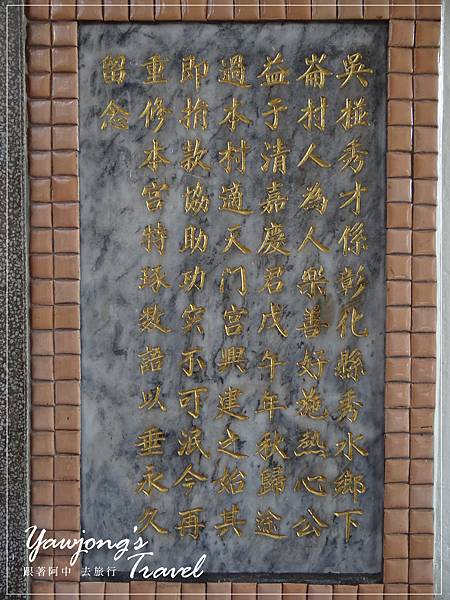 吳槌秀才係彰化縣秀水鄉下
崙村人為人樂善好施熱心公
益于清嘉慶君戊午年秋歸途
過本村適天門宮興建之始其
即捐款協助功實不可泯今再
重修本宮特琢数語以垂永久
留念
Yawjong's
跟著阿中 去旅行 Travel